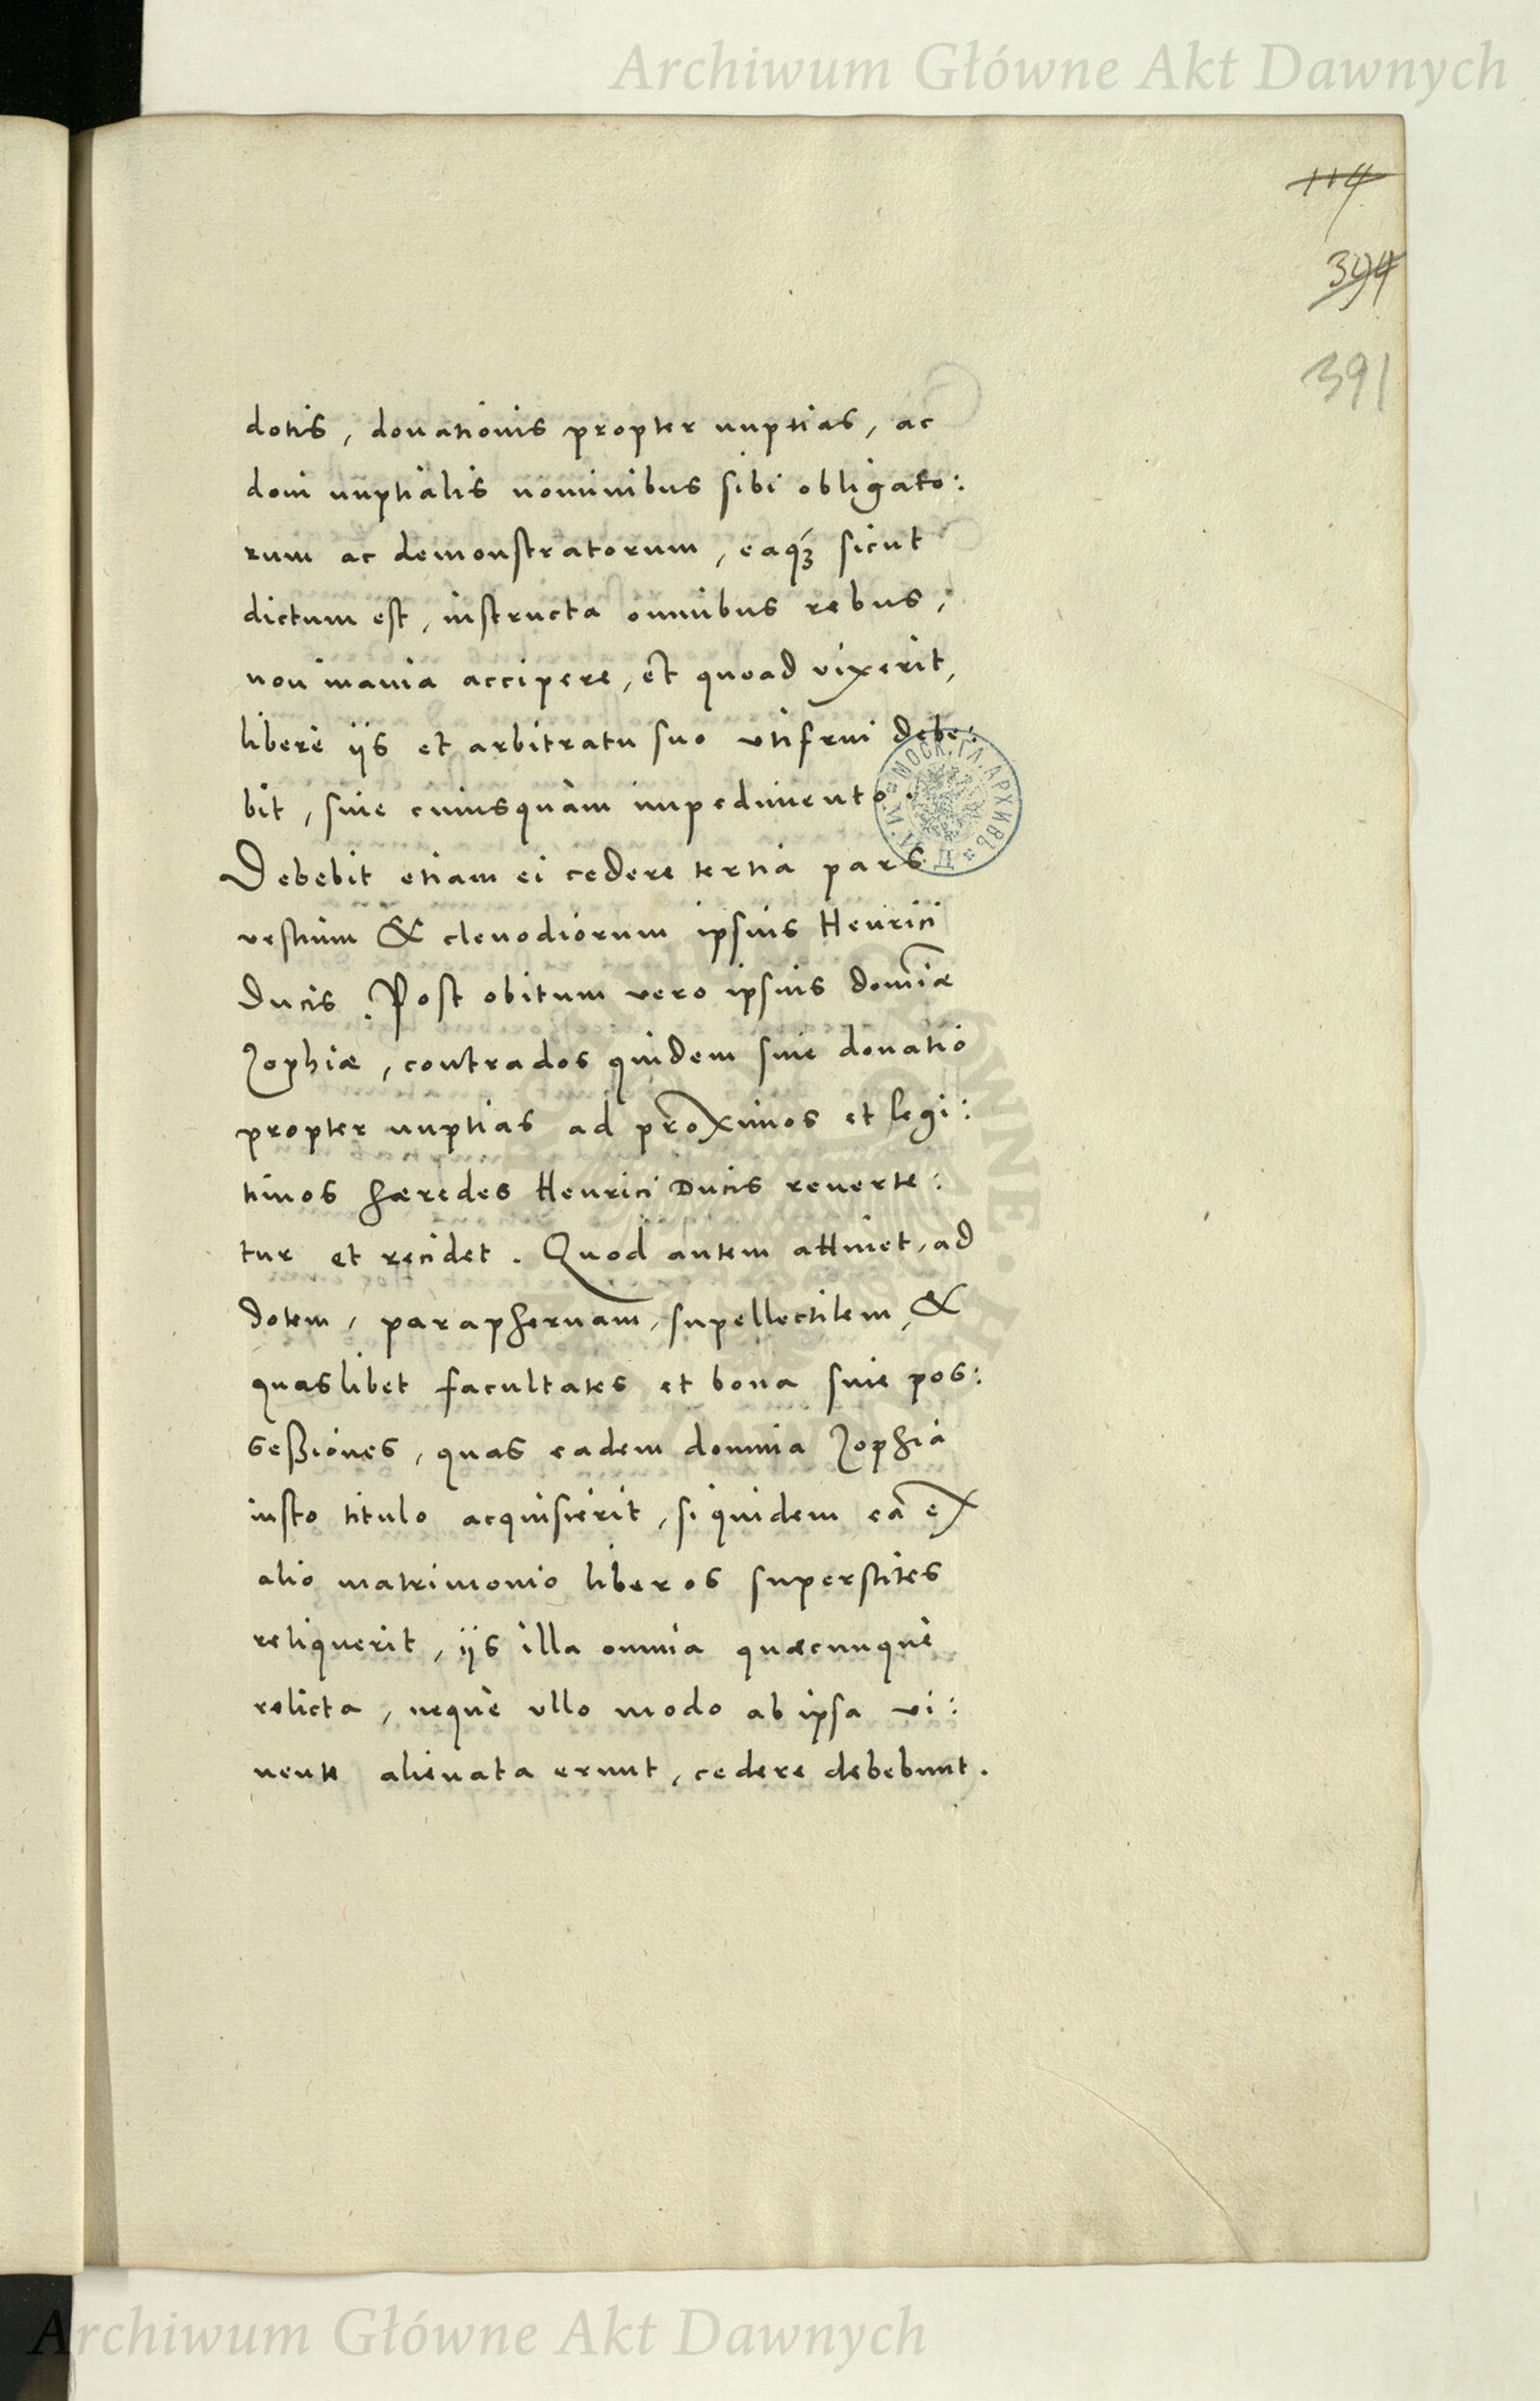 Archiwum Główne Akt Dawnych
114
394
391
dotis, donationis propter nuptias, ac
doni nuptialis nominibus sibi obligato:
rum ac demonstratorum, eaq3 sicut
dictum est, instructa omnibus rebus,
non inania accipere, et quoad vixerit,
liberè ijs et arbitratu suo utifrui debe:
bit, sine cuiusquàm impedimento.
Debebit etiam ei cedere tertia pars
vestium & clenodiorum ipsius Henrici
Ducis. Post obitum vero ipsius domīæ
Zophiæ, contrados quidem sine donatio
propter nuptias ad proximos et legi:
timos hæredes Henrici Ducis reverte:
tur et recidet. Quod autem attinet, ad
dotem, paraphernam, supellectilem, &
quaslibet facultates et bona sine pos:
seßiones, quas eadem domina Zophia
iusto titulo acquisierit, si quidem eā ex
alio matrimonio liberos superstites
reliquerit, ijs illa omnia quæcunquè
relicta, nequè ullo modo ab ipsa vi:
uente alienata erunt, cedere debebunt.
МОСК. ГЛ. АРХИВЪ
Archiwum Główne Akt Dawnych